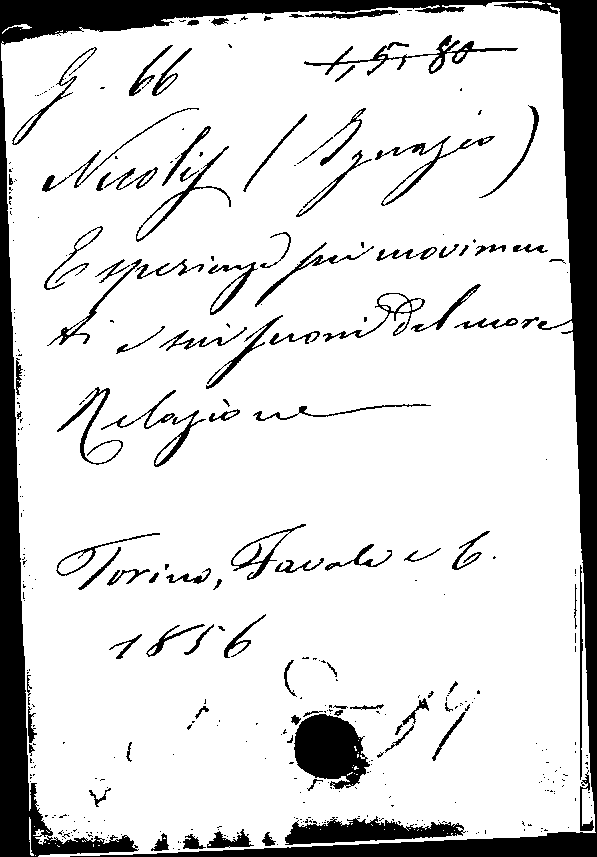 G. 66 1, 5, 80
Nicolis (Ignazio)
Esperienze sui movimen-
ti e sui suoni del cuore
Relazione
Torino, Favale e C.
1856
54